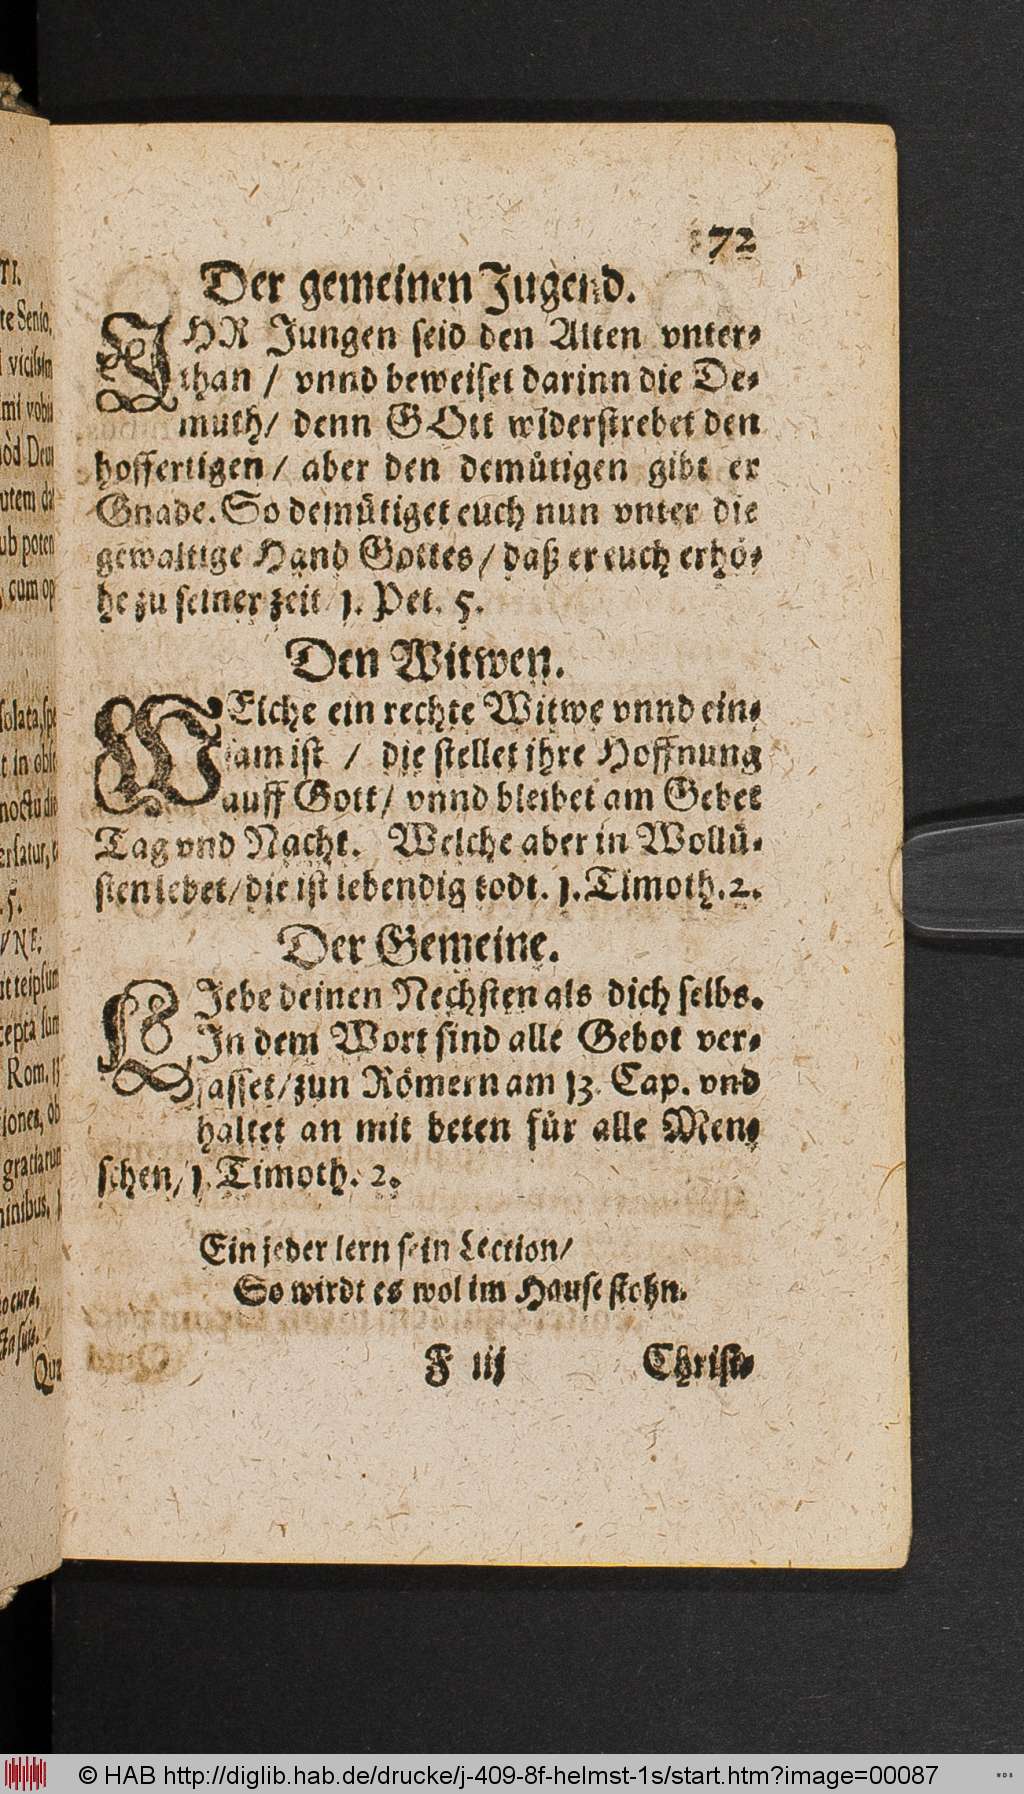 72
Der gemeinen Jugend.
IHR Jungen seid den Alten vnter-
than / vnnd beweiset darinn die De-
muth / denn GOtt widerstrebet den
hoffertigen / aber den demütigen gibt er
Gnade. So demütiget euch nun vnter die
gewaltige Hand Gottes / daß er euch erhö-
he zu seiner zeit 1. Pet. 5.
Den Witwen.
WElche ein rechte Witwe vnnd ein-
sam ist / die stellet ihre Hoffnung
auff Gott / vnnd bleibet am Gebet
Tag vnd Nacht. Welche aber in Wollü-
sten lebet / die ist lebendig todt. 1. Timoth. 2.
Der Gemeine.
LIebe deinen Nechsten als dich selbs.
In dem Wort sind alle Gebot ver-
fasset / zun Römern am 13. Cap. vnd
haltet an mit beten für alle Men-
schen / 1. Timoth. 2.
Ein jeder lern sein Lection /
So wirdt es wol im Hause stohn.
F iij Christ-
© HAB http://diglib.hab.de/drucke/j-409-8f-helmst-1s/start.htm?image=00087